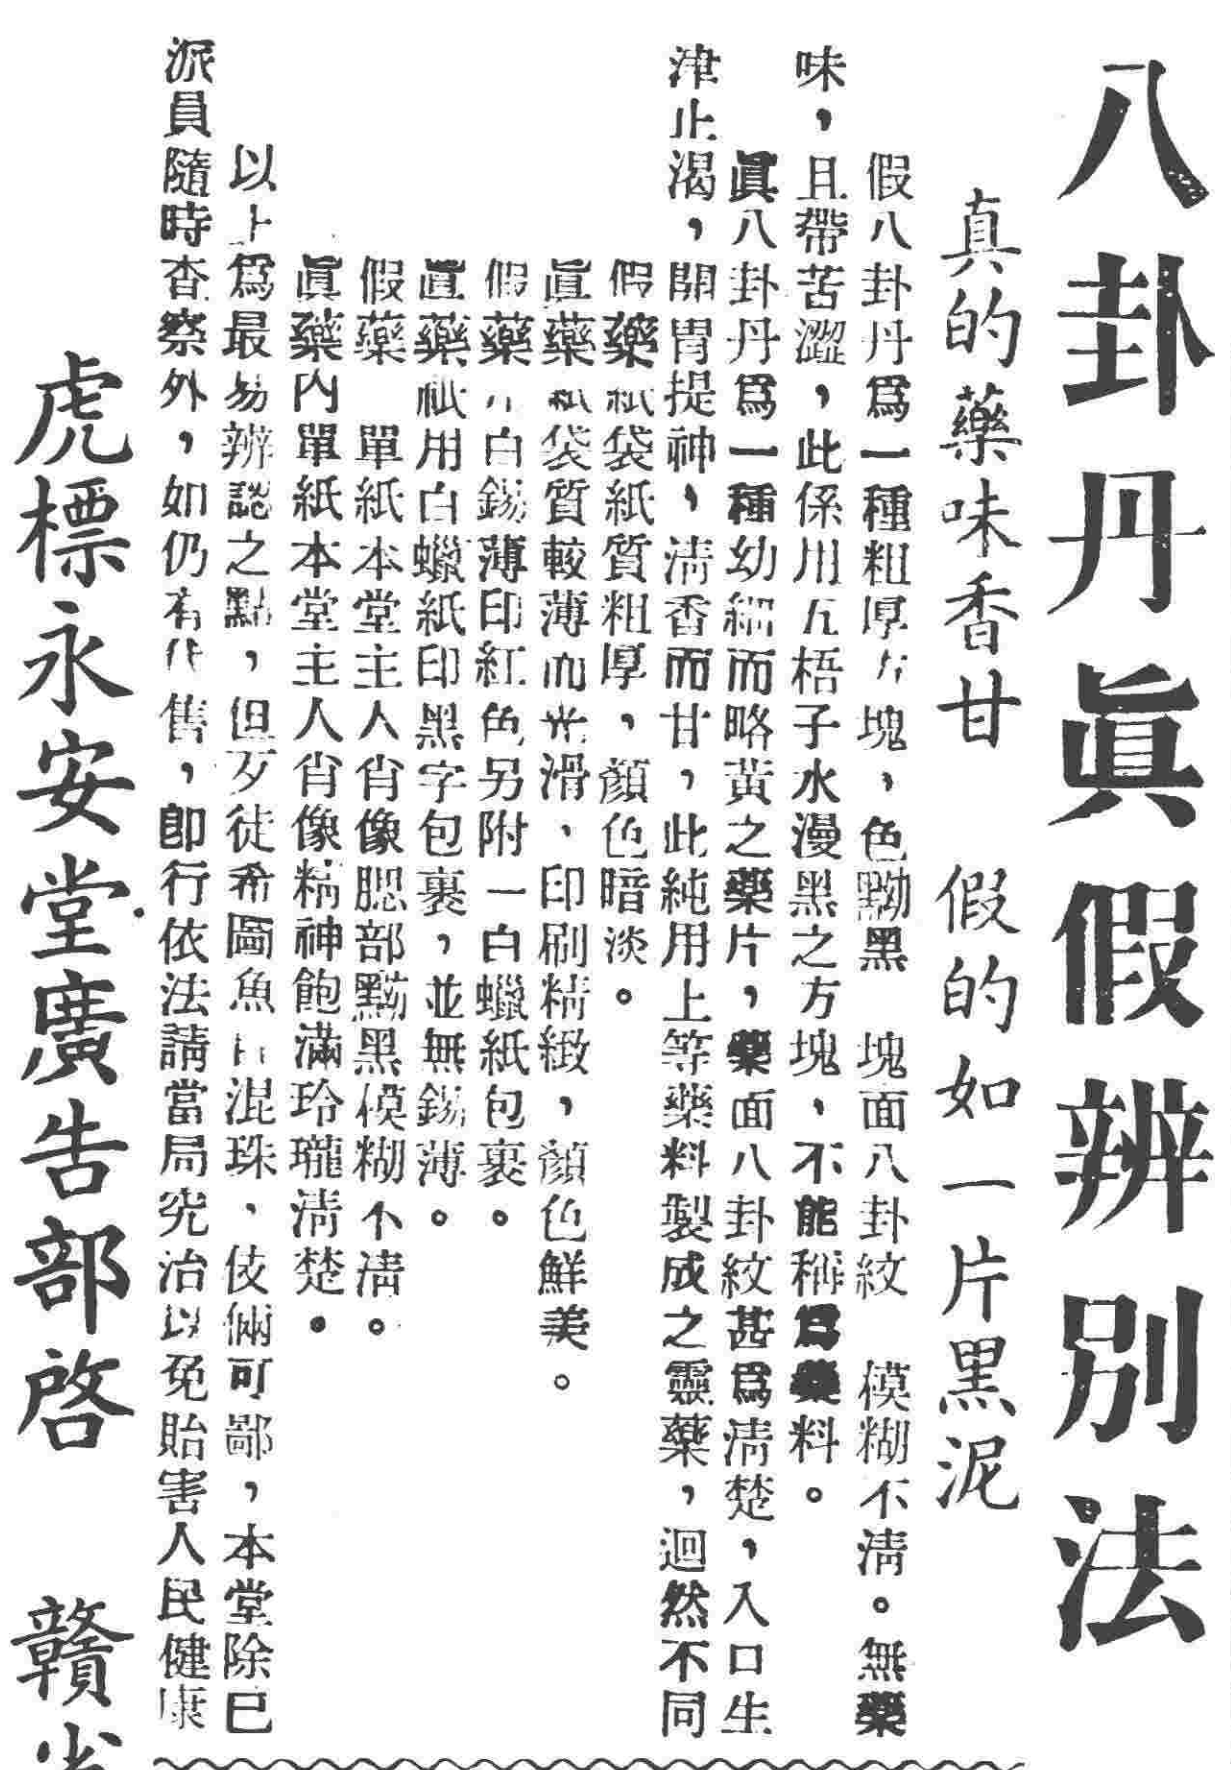 八卦丹眞假辨別法
真的藥味香甘　假的如一片黑泥
假八卦丹爲一種粗厚方塊，色黝黑　塊面八卦紋　模糊不淸。無藥
味，且帶苦澀，此係用五梧子水漫黑之方塊、不能稱爲藥料。
眞八卦丹爲一種幼細而略黃之藥片，藥面八卦紋甚爲淸楚，入口生
津止渴，開胃提神，淸香而甘，此純用上等藥料製成之靈藥，迴然不同
假藥紙袋紙質粗厚，顏色暗淡。
眞藥紙袋質較薄而光滑、印刷精緻，顏色鮮美。
假藥　白錫薄印紅色另附一白蠟紙包裹。
眞藥祇用白蠟紙印黑字包裹，並無錫薄。
假藥　單紙本堂主人肖像腮部黝黑模糊不淸。
眞藥內單紙本堂主人肖像精神飽滿玲瓏淸楚。
以上爲最易辨認之點，但歹徒希圖魚目混珠、伎倆可鄙，本堂除已
派員隨時查察外，如仍有代售，卽行依法請當局究治以免貽害人民健康
虎標永安堂廣告部啓　贛